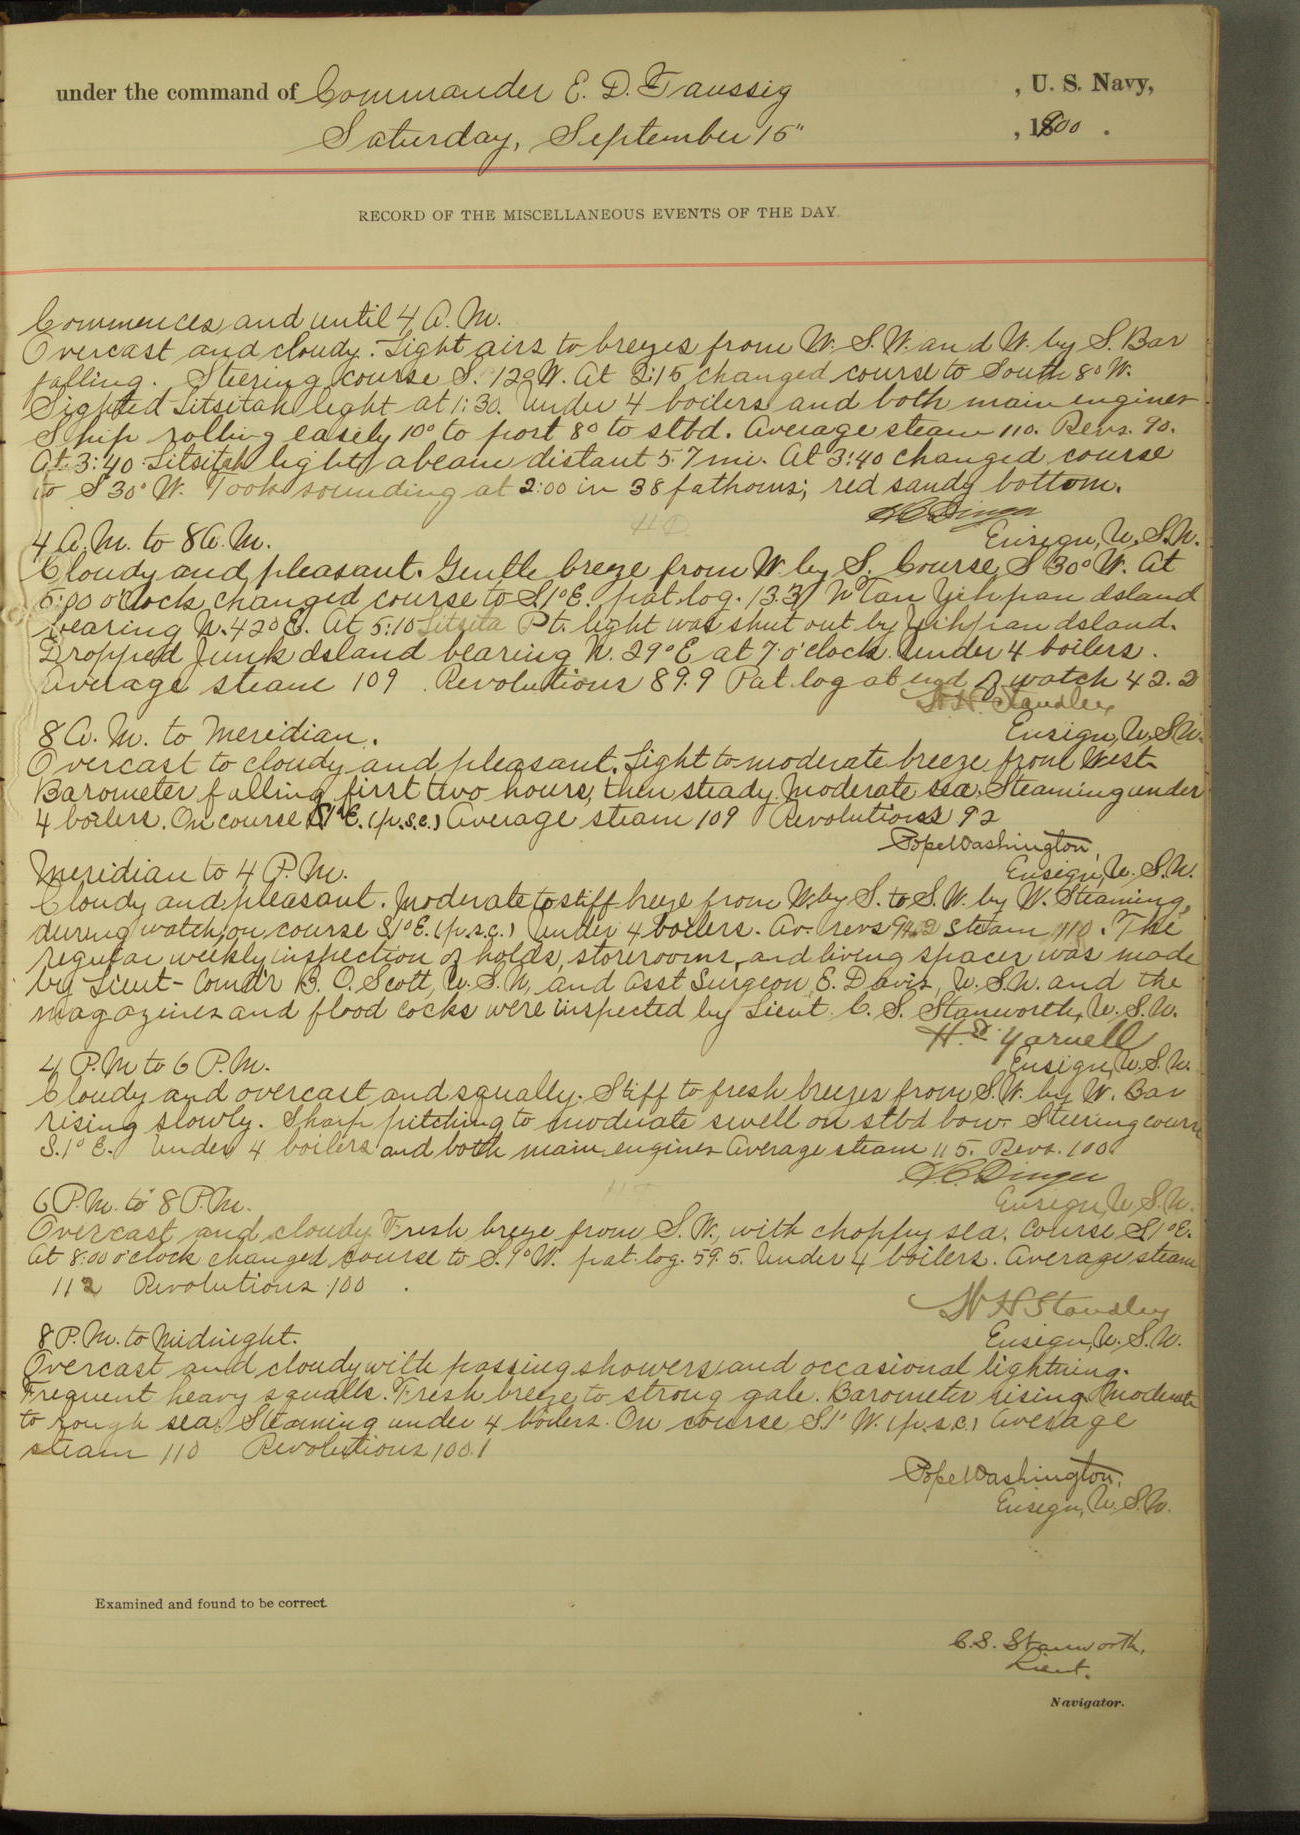 under the command of Commander E. D. Taussig , U. S. Navy,
Saturday, September 15" , 1900 .
RECORD OF THE MISCELLANEOUS EVENTS OF THE DAY.
Commences and until 4 A. M.
Overcast and cloudy. Light airs to breezes from W. S. W. and W. by S. Bar
falling. Steering course S. 12° W. At 2:15 changed course to South 8° W.
Sighted Litsitah light at 1:30. Under 4 boilers and both main engines.
Ship rolling easily 10° to port 8° to stbd. Average steam 110. Revs. 90.
At 3:40 Litsitah light abeam distant 5.7 mi. At 3:40 changed course
to S 30° W. Took sounding at 2:00 in 38 fathoms; red sandy bottom.
H C Dinger
Ensign, U. S. N.
4 A. M. to 8 A. M.
Cloudy and pleasant. Gentle breeze from W. by S. Course S 30° W. At
5:00 o'clock changed course to S. 1° E. pat. log. 13.3 Tan Yihpan Island
bearing N. 42° E. At 5:10 Litsita Pt. light was shut out by Yihpan Island.
Dropped Junk Island bearing N. 29° E at 7 o'clock. Under 4 boilers.
Average steam 109. Revolutions 89.9 Pat. log at end of watch 42.2
W H. Standley
Ensign, U. S. N.
8 A. M. to Meridian.
Overcast to cloudy and pleasant. Light to moderate breeze from West
Barometer falling first two hours, then steady. Moderate sea. Steaming under
4 boilers. On course S 1° E. (p.s.c.) Average steam 109 Revolutions 92
Pope Washington,
Ensign, U. S. N.
Meridian to 4 P. M.
Cloudy and pleasant. Moderate to stiff breeze from W. by S. to S. W. by W. Steaming,
during watch, on course S 1° E. (p.s.c.) Under 4 boilers. Av. revs steam 110. The
regular weekly inspection of holds, storerooms, and living spaces was made
by Lieut-Comdr B. O. Scott, U. S. N, and Asst Surgeon E. Davis, U. S. N. and the
magazines and flood cocks were inspected by Lieut. C. S. Stanworth, U. S. N.
H. E. Yarnell
Ensign, U. S. N.
4 P. M to 6 P. M.
Cloudy and overcast and squally. Stiff to fresh breezes from S. W. by W. Bar
rising slowly. Sharp pitching to moderate swell on stbd bow. Steering course
S. 1° E. Under 4 boilers and both main engines Average steam 115. Revs. 100.
H C Dinger
Ensign, U. S. N.
6 P. M. to 8 P. M.
Overcast and cloudy. Fresh breeze from S. W., with choppy sea. Course S. 1° E.
At 8:00 o'clock changed course to S. 1° W. pat. log. 59.5. Under 4 boilers. Average steam
112 Revolutions 100.
W H Standley
Ensign, U. S. N.
8 P. M. to Midnight.
Overcast and cloudy with passing showers and occasional lightning.
Frequent heavy squalls. Fresh breeze to strong gale. Barometer rising. Moderate
to rough sea. Steaming under 4 boilers. On course S 1° W. (p.s.c.) Average
steam 110 Revolutions 100.1
Pope Washington,
Ensign, U. S. N.
Examined and found to be correct.
C. S. Stanworth,
Lieut.
Navigator.